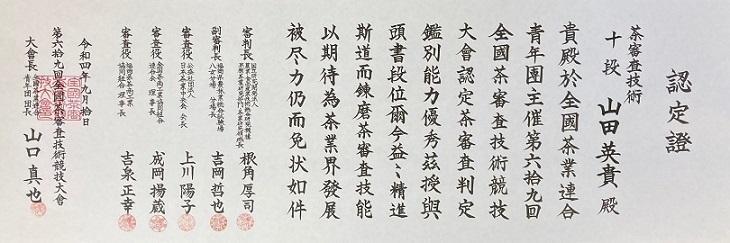 認定證
茶審査技術
十段 山田英貴 殿
貴殿於全國茶業連合
青年團主催第六拾九回
全國茶審査技術競技
大會認定茶審査判定
鑑別能力優秀茲授與
頭書段位爾今益々精進
斯道而錬磨茶審査技能
以期待為茶業界發展
被尽力仍而免状如件
審判長
根角厚司
副審判長
吉岡哲也
審査役
公益社団法人
日本茶業中央会 会長
上川陽子
審査役
理事長
成岡揚蔵
審査役
福岡県茶商工業
協同組合 理事長
吉泉正幸
令和四年九月拾日
第六拾九回全國茶審査技術競技大會
大會長
青年団団長
山口真也